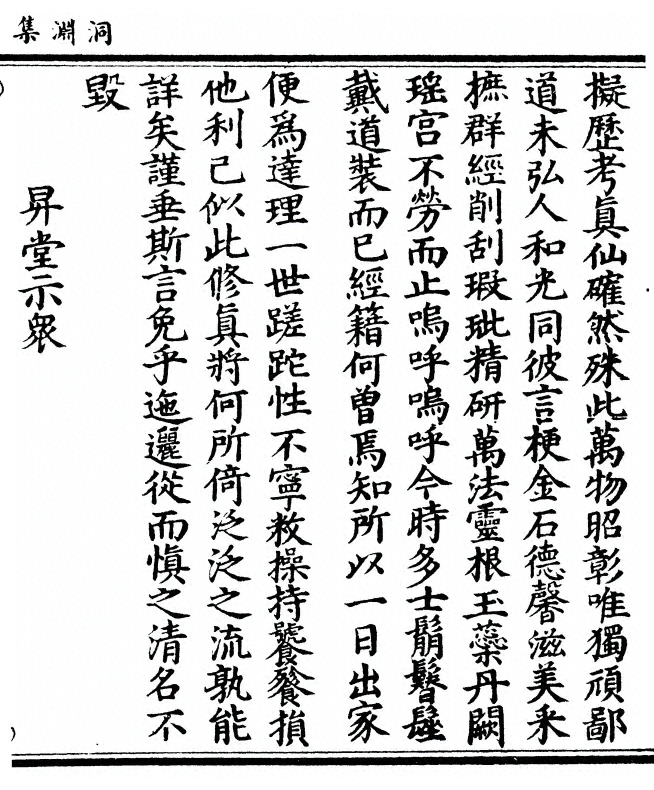 洞淵集
擬歷考眞仙確然殊此萬物昭彰唯獨頑鄙
道未弘人和光同彼言梗金石德馨滋美采
摭群經削刮瑕玼精研萬法靈根玉蘂丹闕
瑶宮不勞而止嗚呼嗚呼今時多士鬅鬙髽
戴道裝而已經籍何曾焉知所以一日出家
便爲達理一世蹉跎性不寧敉操持饕餮損
他利己似此修眞將何所倚泛泛之流孰能
詳矣謹垂斯言免乎迤邐從而慎之清名不
毀
昇堂示衆